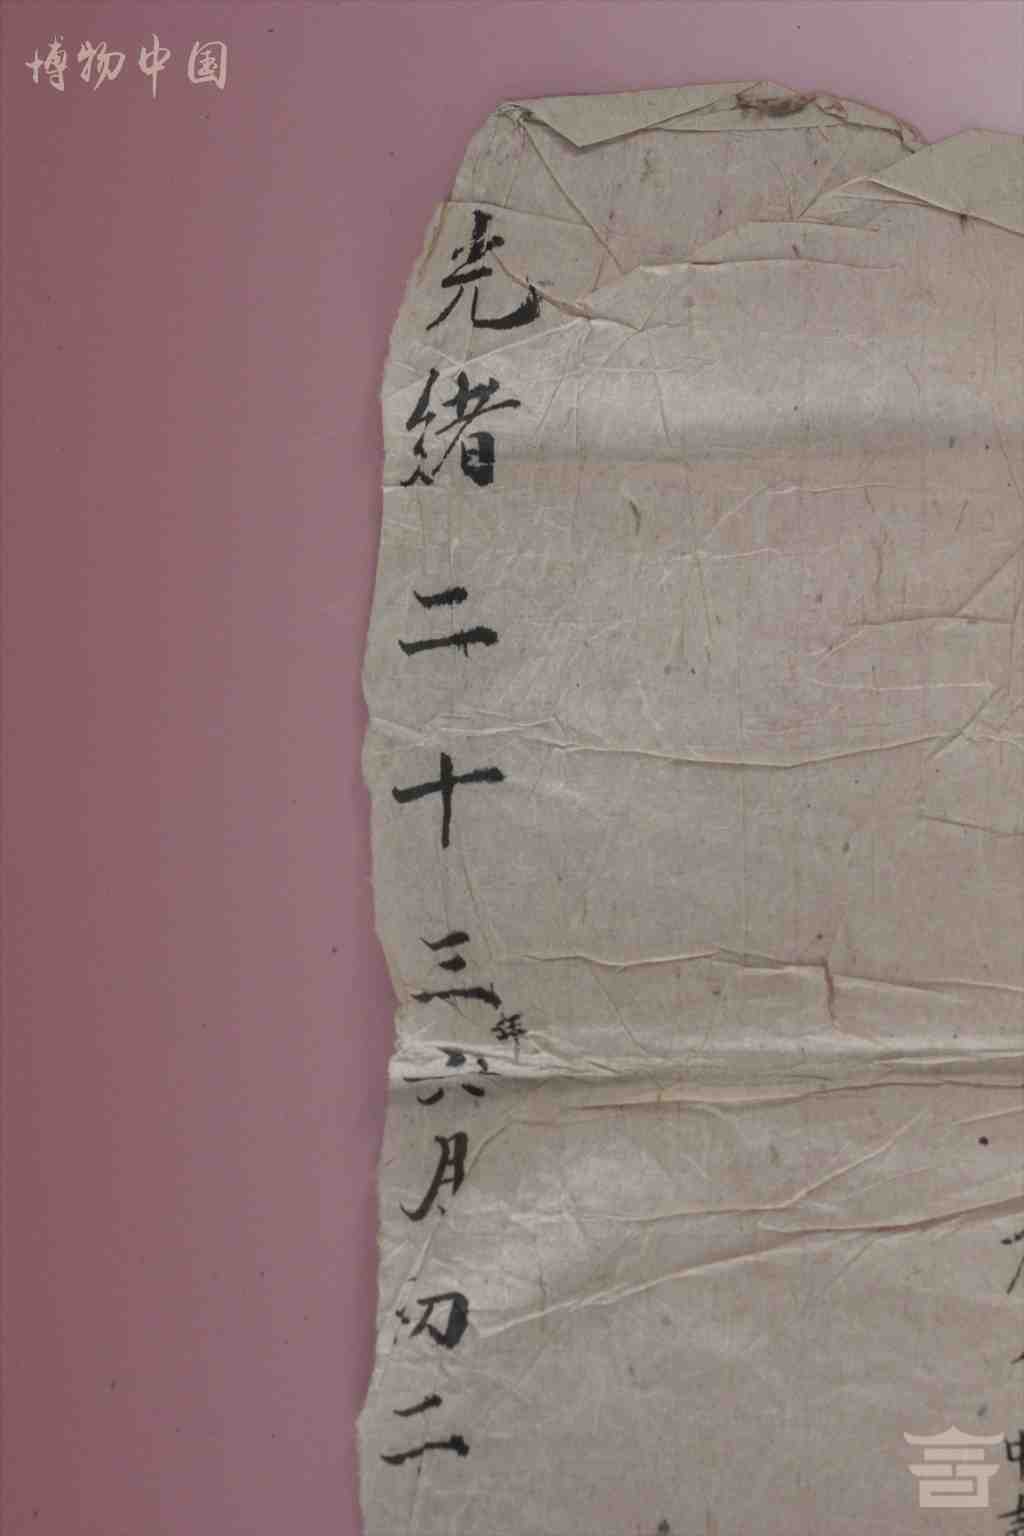 博物中国
光緒二十三年六月初二